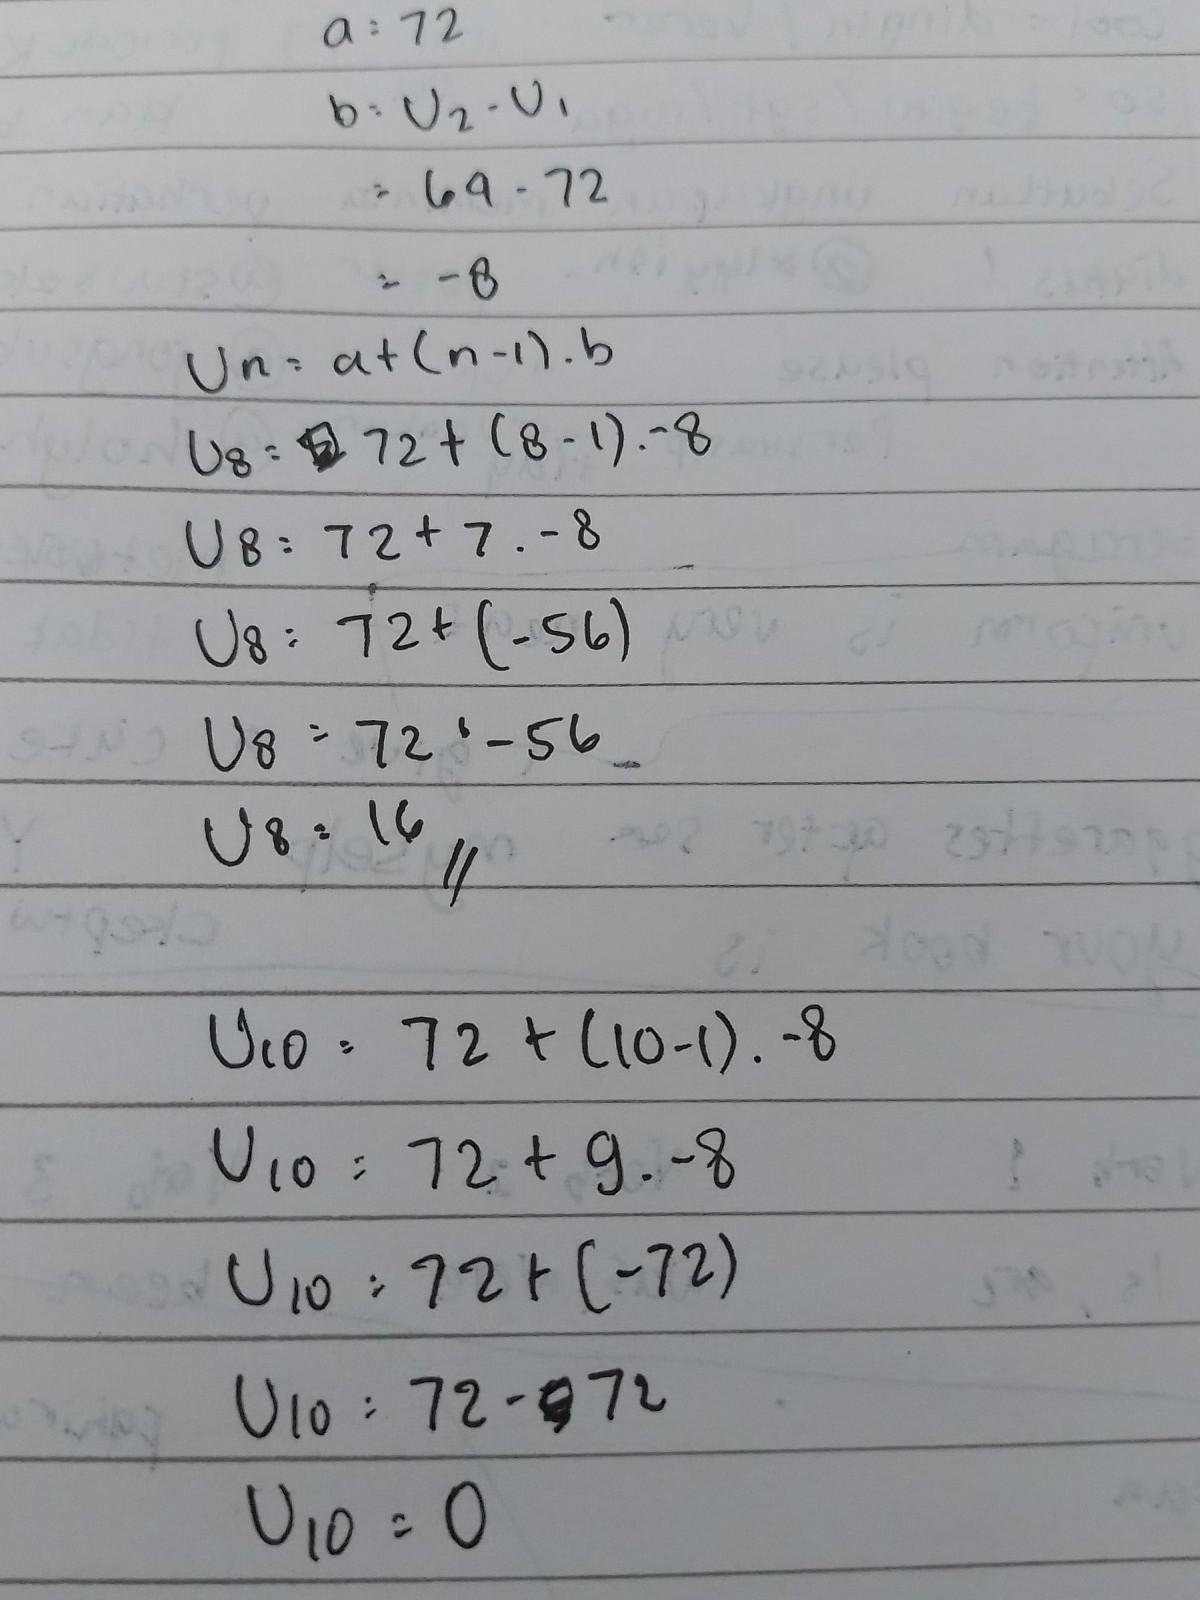 a = 72
b = U2 - U1
= 64 - 72
= -8
Un = a + (n-1) . b
U8 = 72 + (8-1) . -8
U8 = 72 + 7 . -8
U8 = 72 + (-56)
U8 = 72 - 56
U8 = 16 //
U10 = 72 + (10-1) . -8
U10 = 72 + 9 . -8
U10 = 72 + (-72)
U10 = 72 - 72
U10 = 0